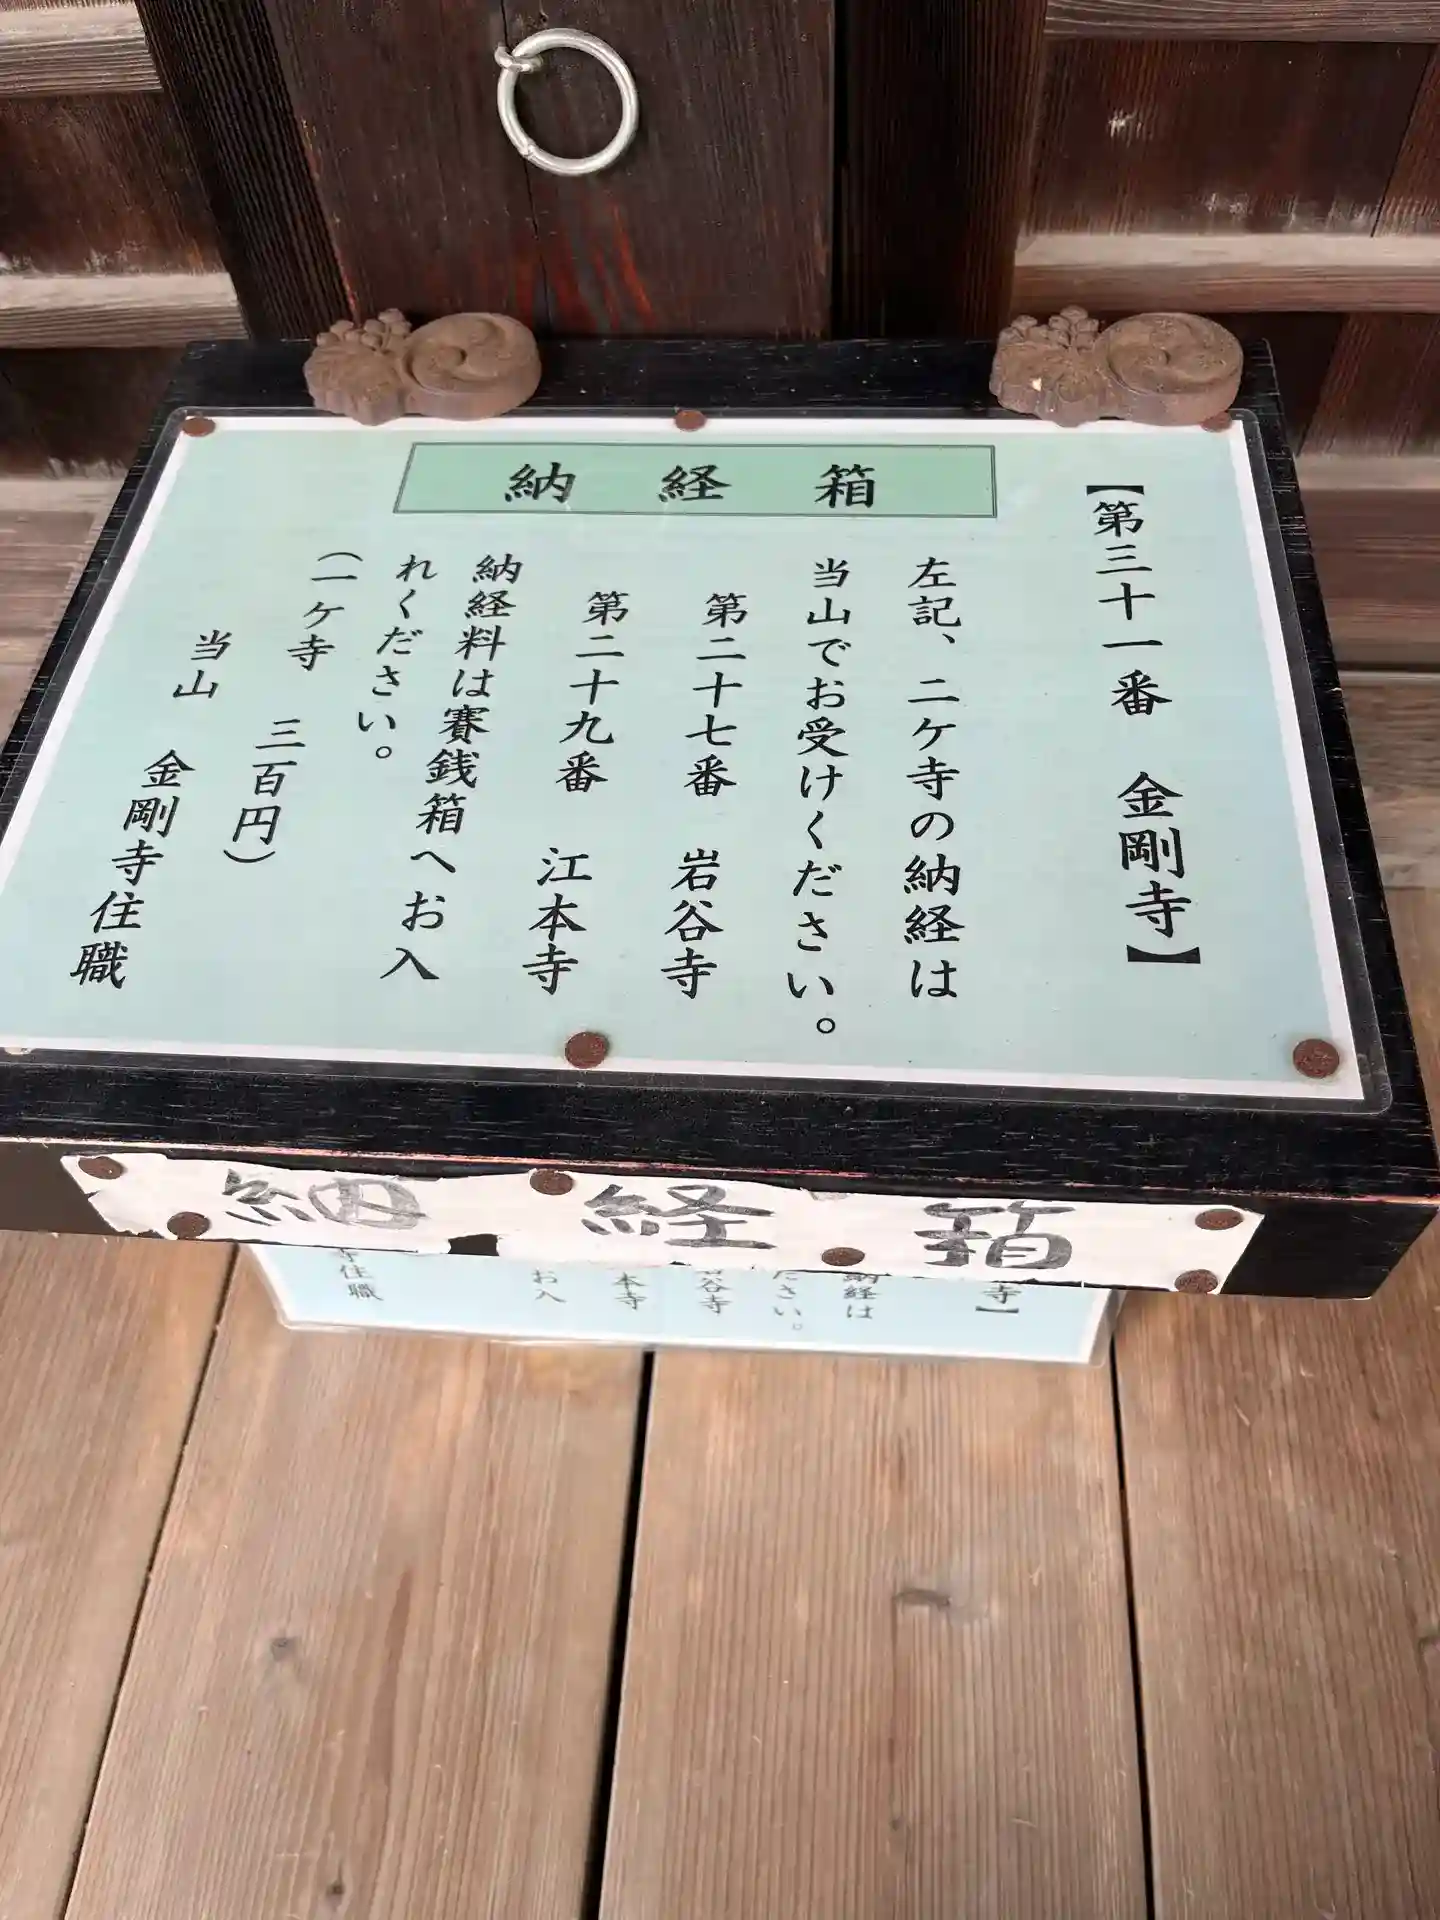 納経箱
【第三十一番　金剛寺】
左記、二ケ寺の納経は
当山でお受けください。
第二十七番　岩谷寺
第二十九番　江本寺
納経料は賽銭箱へお入
れください。
（一ケ寺　三百円）
当山　金剛寺住職
納経箱
寺】
納経は
ださい。
岩谷寺
本寺
お入
寺住職